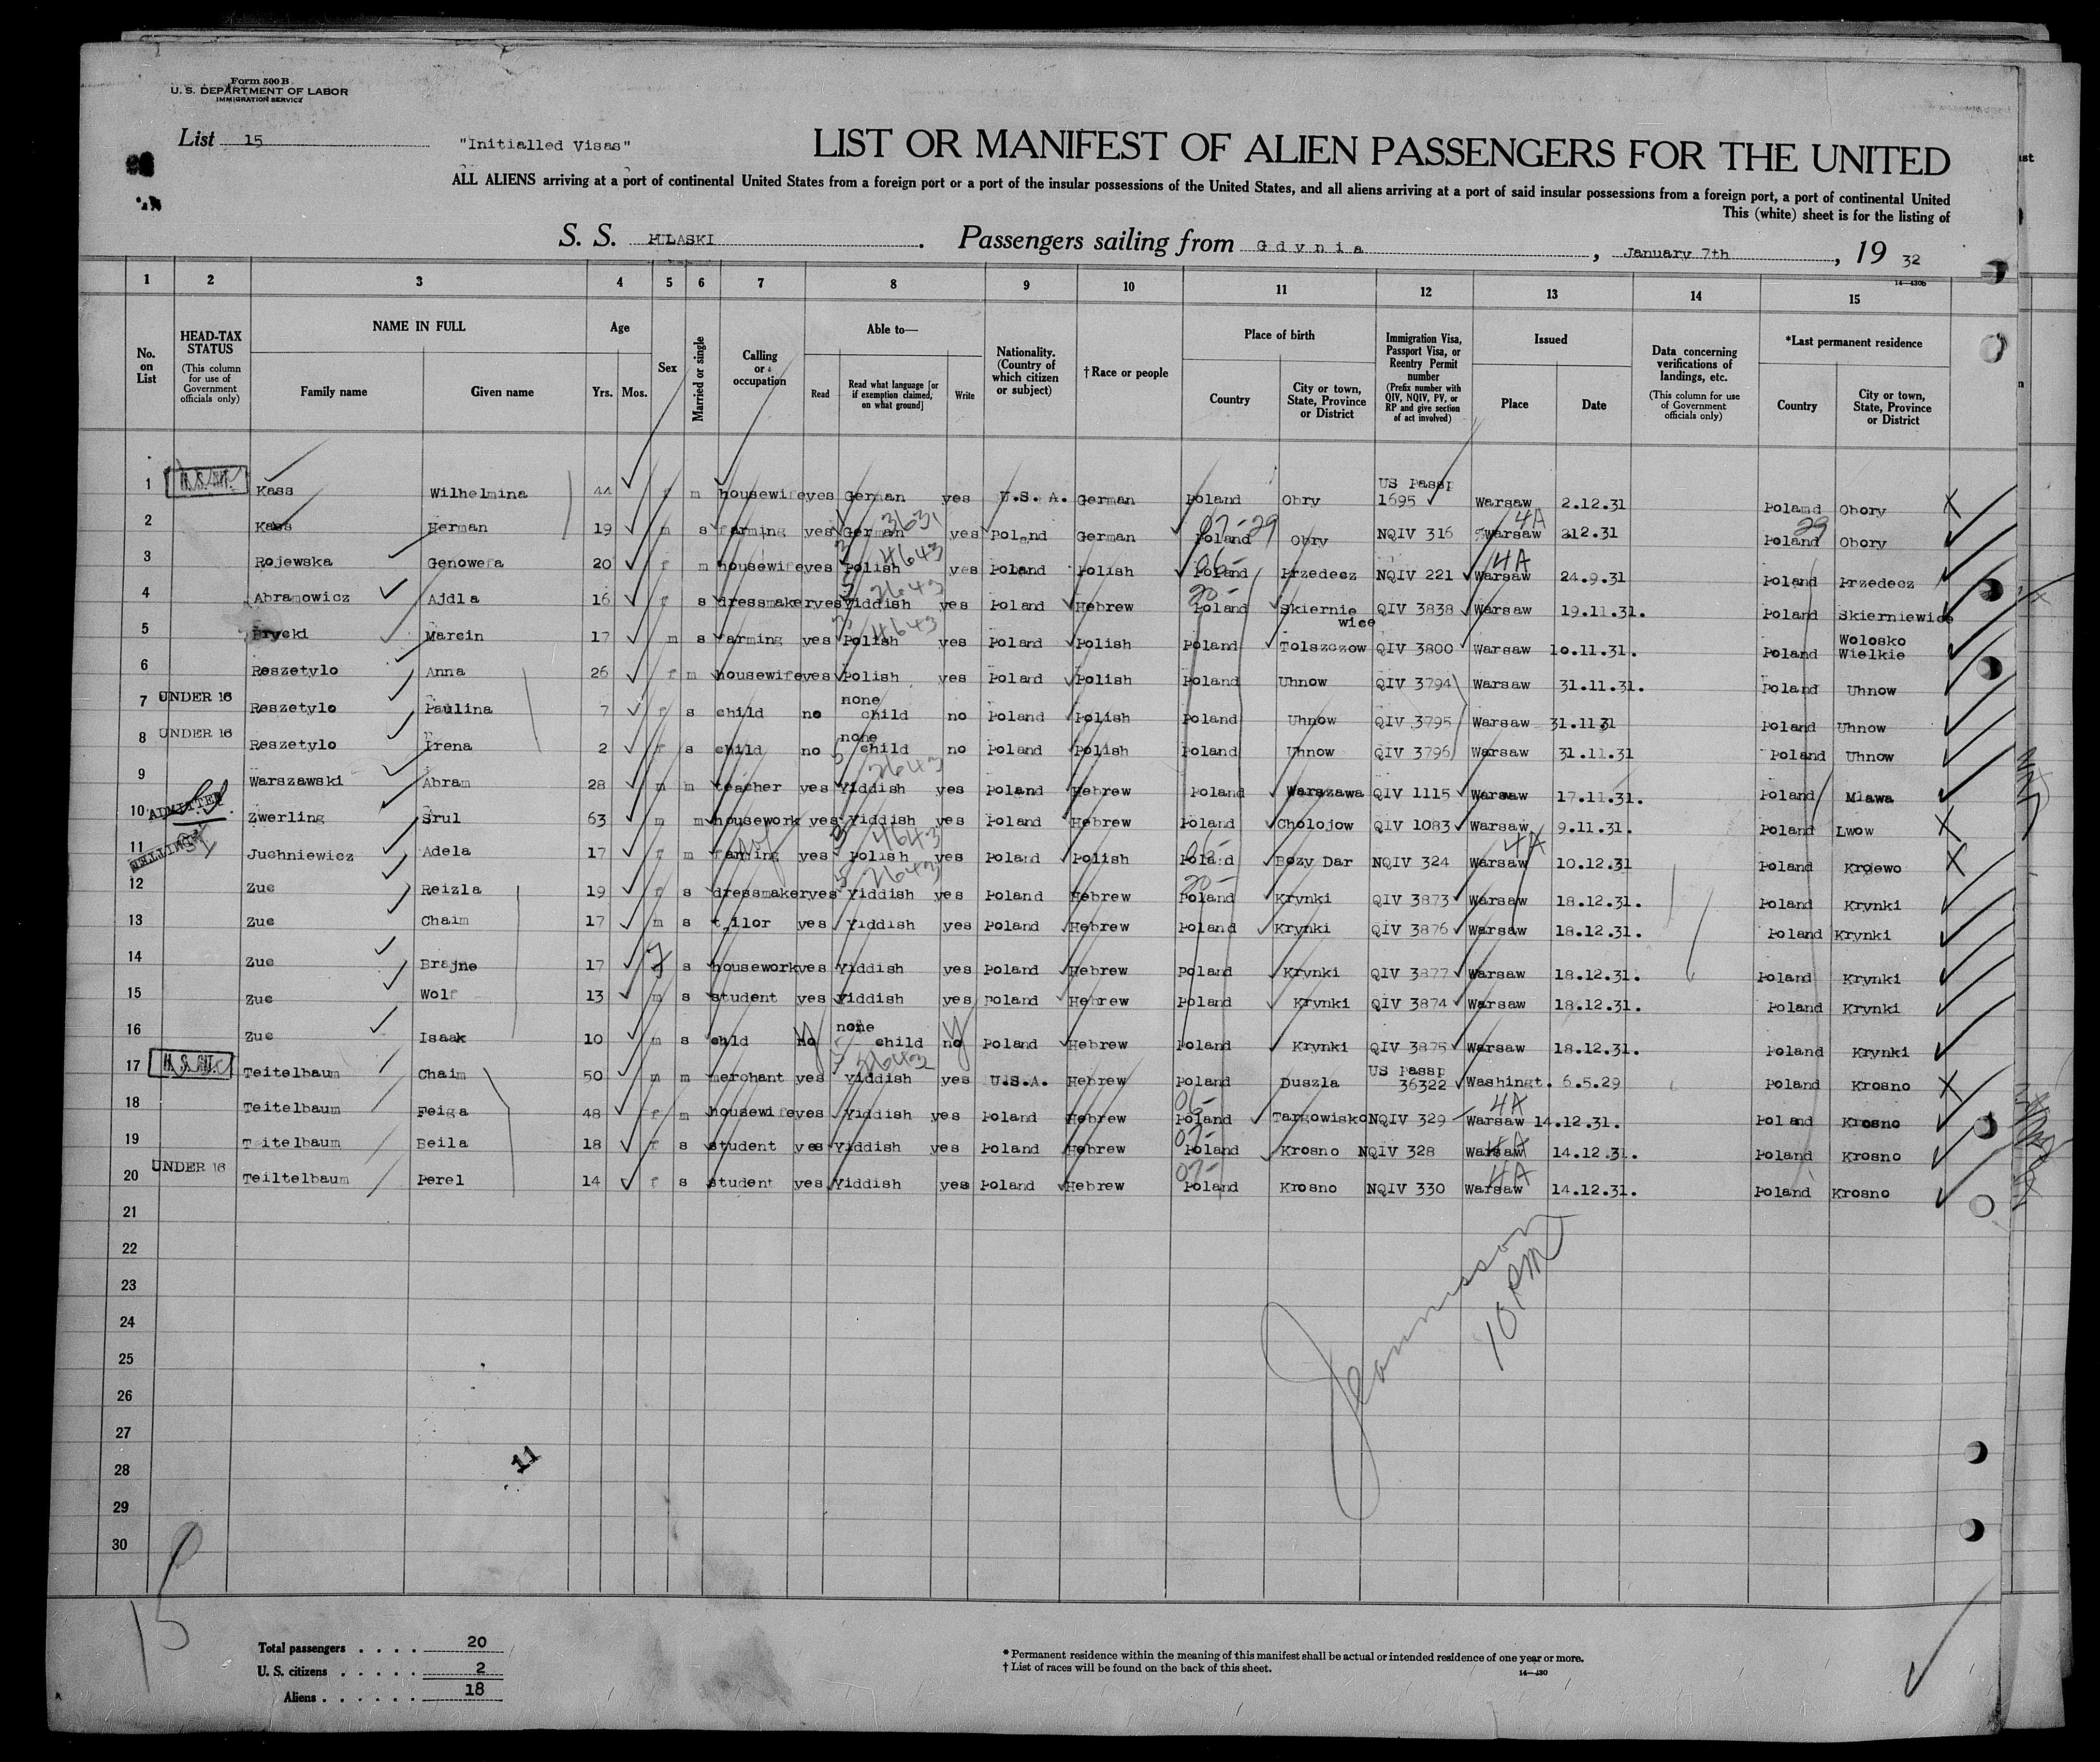 Form 500 B
U. S. DEPARTMENT OF LABOR
IMMIGRATION SERVICE
List 15
"Initialled Visas"
LIST OR MANIFEST OF ALIEN PASSENGERS FOR THE UNITED
ALL ALIENS arriving at a port of continental United States from a foreign port or a port of the insular possessions of the United States, and all aliens arriving at a port of said insular possessions from a foreign port, a port of continental United
This (white) sheet is for the listing of
S. S. PULASKI . Passengers sailing from Gdynia , January 7th , 19 32
14—430b
1 2 3 4 5 6 7 8 9 10 11 12 13 14 15
No. on List
HEAD-TAX STATUS (This column for use of Government officials only)
NAME IN FULL
Family name Given name
Age
Yrs. Mos.
Sex
Married or single
Calling or occupation
Able to—
Read
Read what language [or if exemption claimed, on what ground]
Write
Nationality. (Country of which citizen or subject)
† Race or people
Place of birth
Country
City or town, State, Province or District
Immigration Visa, Passport Visa, or Reentry Permit number (Prefix number with QIV, NQIV, PV, or RP and give section of act involved)
Issued
Place Date
Data concerning verifications of landings, etc. (This column for use of Government officials only)
*Last permanent residence
Country
City or town, State, Province or District
1 Kass Wilhelmina 44 f m housewife yes German yes U.S.A. German Poland Obry US Passp 1695 Warsaw 2.12.31 Poland Obory X
2 Kass Herman 19 m s farming yes German 3631 yes Poland German 07-29 Poland Obry NQIV 316 4A Warsaw 212.31 29 Poland Obory
3 Rojewska Genowefa 20 f m housewife yes Polish 4643 yes Poland Polish 06- Poland Przedecz NQIV 221 4A Warsaw 24.9.31 Poland Przedecz
4 Abramowicz Ajdla 16 f s dressmaker yes Yiddish 2643 yes Poland Hebrew 20- Poland Skierniewice QIV 3838 Warsaw 19.11.31. Poland Skierniewice
5 Brycki Marcin 17 m s farming yes Polish 4643 yes Poland Polish Poland Tolszczow QIV 3800 Warsaw 10.11.31. Poland Wolosko Wielkie
6 Reszetylo Anna 26 f m housewife yes Polish yes Poland Polish Poland Uhnow QIV 3794 Warsaw 31.11.31. Poland Uhnow
7 UNDER 16 Reszetylo Paulina 7 f s child no none child no Poland Polish Poland Uhnow QIV 3795 Warsaw 31.11 31 Poland Uhnow
8 UNDER 16 Reszetylo Irena 2 f s child no none child no Poland Polish Poland Uhnow QIV 3796 Warsaw 31.11.31 Poland Uhnow
9 Warszawski Abram 28 m m teacher yes Yiddish 2643 yes Poland Hebrew Poland Warszawa QIV 1115 Warsaw 17.11.31. Poland Mlawa
10 ADMITTED Zwerling Srul 63 m m housework yes Yiddish yes Poland Hebrew Poland Cholojow QIV 1083 Warsaw 9.11.31. Poland Lwow X
11 Juchniewicz Adela 17 f m farming yes Polish 4643 yes Poland Polish 06- Poland Bozy Dar NQIV 324 4A Warsaw 10.12.31 Poland Krojewo X
12 Zuc Reizla 19 f s dressmaker yes Yiddish 2643 yes Poland Hebrew 20- Poland Krynki QIV 3873 Warsaw 18.12.31. Poland Krynki
13 Zuc Chaim 17 m s tailor yes Yiddish yes Poland Hebrew Poland Krynki QIV 3876 Warsaw 18.12.31. Poland Krynki
14 Zuc Brajne 17 f s housework yes Yiddish yes Poland Hebrew Poland Krynki QIV 3877 Warsaw 18.12.31. Poland Krynki
15 Zuc Wolf 13 m s student yes Yiddish yes Poland Hebrew Poland Krynki QIV 3874 Warsaw 18.12.31. Poland Krynki
16 Zuc Isaak 10 m s child no none child no Poland Hebrew Poland Krynki QIV 3875 Warsaw 18.12.31. Poland Krynki
17 Teitelbaum Chaim 50 m m merchant yes Yiddish 2643 yes U.S.A. Hebrew Poland Duszla US Passp 36322 Washingt. 6.5.29 Poland Krosno X
18 Teitelbaum Feiga 48 f m housewife yes Yiddish yes Poland Hebrew 06- Poland Targowisko NQIV 329 4A Warsaw 14.12.31. Poland Krosno
19 Teitelbaum Beila 18 f s student yes Yiddish yes Poland Hebrew 07- Poland Krosno NQIV 328 4A Warsaw 14.12 31. Poland Krosno
20 UNDER 16 Teiltelbaum Perel 14 f s student yes Yiddish yes Poland Hebrew 07- Poland Krosno NQIV 330 4A Warsaw 14.12.31. Poland Krosno
21
22
23
24
25
26
27
28
29
30
10 PM
11
15
Total passengers . . . . 20
U. S. citizens . . . . . 2
Aliens . . . . . . 18
* Permanent residence within the meaning of this manifest shall be actual or intended residence of one year or more.
† List of races will be found on the back of this sheet.
14—430